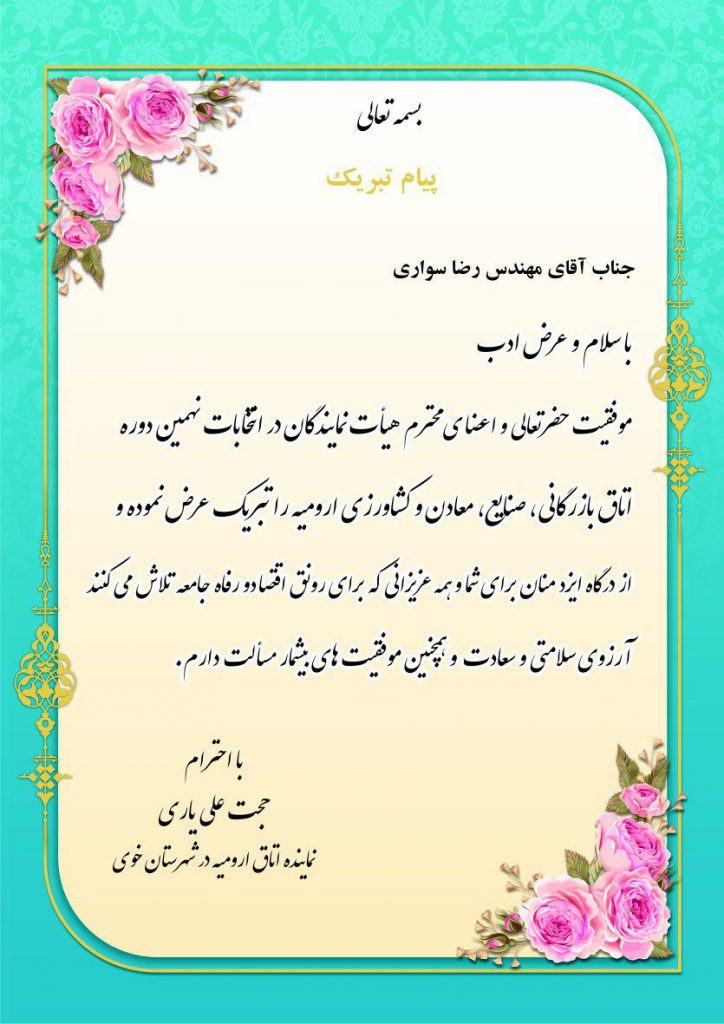 بسمه تعالی
پیام تبریک
جناب آقای مهندس رضا سواری
با سلام و عرض ادب
موفقیت حضرتعالی و اعضای محترم هیأت نمایندگان در انتخابات نهمین دوره
اتاق بازرگانی، صنایع، معادن و کشاورزی ارومیه را تبریک عرض نموده و
از درگاه ایزد منان برای شما و همه عزیزانی که برای رونق اقتصاد و رفاه جامعه تلاش می کنند
آرزوی سلامتی و سعادت و همچنین موفقیت های بیشمار مسألت دارم.
با احترام
حجت علی یاری
نماینده اتاق ارومیه در شهرستان خوی